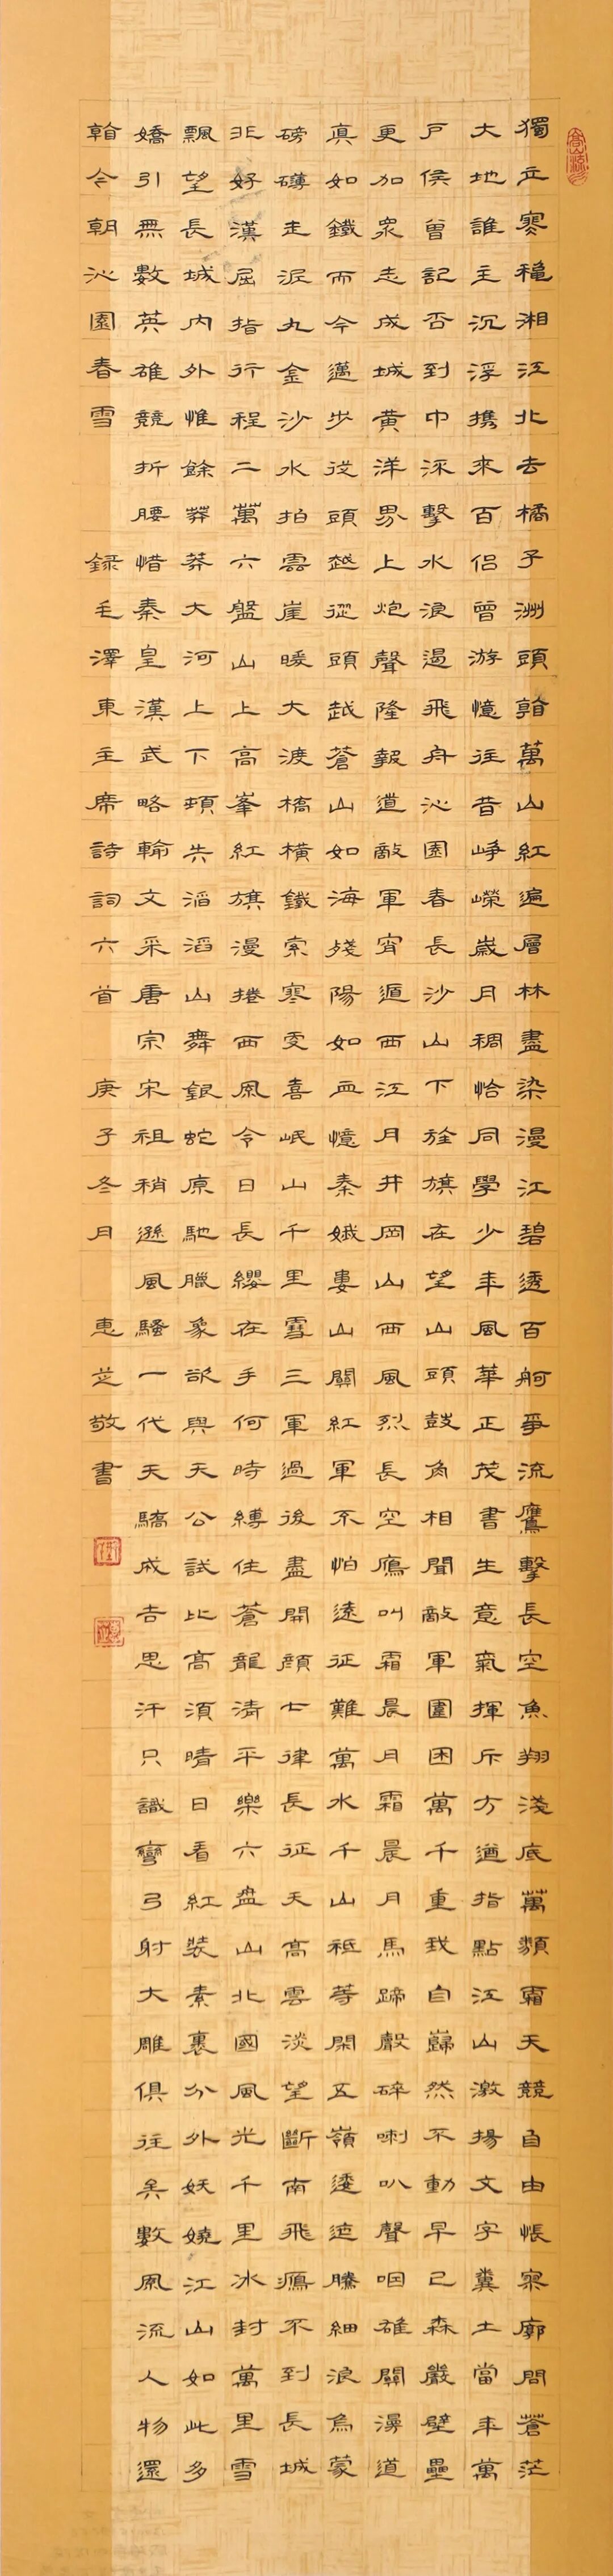 獨立寒穐湘江北去橘子洲頭看萬山紅遍層林盡染漫江碧透百舸爭流鷹擊長空魚翔淺底萬類霜天競自由悵寥廓問蒼茫
大地誰主沉浮携來百侶曾游憶往昔崢嶸歲月稠恰同學少年風華正茂書生意氣揮斥方遒指點江山激揚文字糞土當年萬
戶侯曾記否到中流擊水浪遏飛舟沁園春長沙山下旌旗在望山頭鼓角相聞敵軍圍困萬千重我自巋然不動早已森嚴壁壘
更加衆志成城黃洋界上炮聲隆報道敵軍宵遁西江月井岡山西風烈長空鴈叫霜晨月霜晨月馬蹄聲碎喇叭聲咽雄關漫道
真如鐵而今邁步從頭越從頭越蒼山如海殘陽如血憶秦娥婁山關紅軍不怕遠征難萬水千山祗等閑五嶺逶迤騰細浪烏蒙
磅礴走泥丸金沙水拍雲崖暖大渡橋橫鐵索寒更喜岷山千里雪三軍過後盡開顏七律長征天高雲淡望斷南飛鴈不到長城
非好漢屈指行程二萬六盤山上高峯紅旗漫捲西風今日長纓在手何時縛住蒼龍清平樂六盘山北國風光千里冰封萬里雪
飄望長城內外惟餘莽莽大河上下頓失滔滔山舞銀蛇原馳臘象欲與天公試比高須晴日看紅裝素裹分外妖嬈江山如此多
嬌引無數英雄競折腰惜秦皇漢武略輸文采唐宗宋祖稍遜風騷一代天驕成吉思汗只識彎弓射大雕俱往矣數風流人物還
看今朝沁園春雪 録毛澤東主席詩詞六首 庚子冬月 惠芝敬書